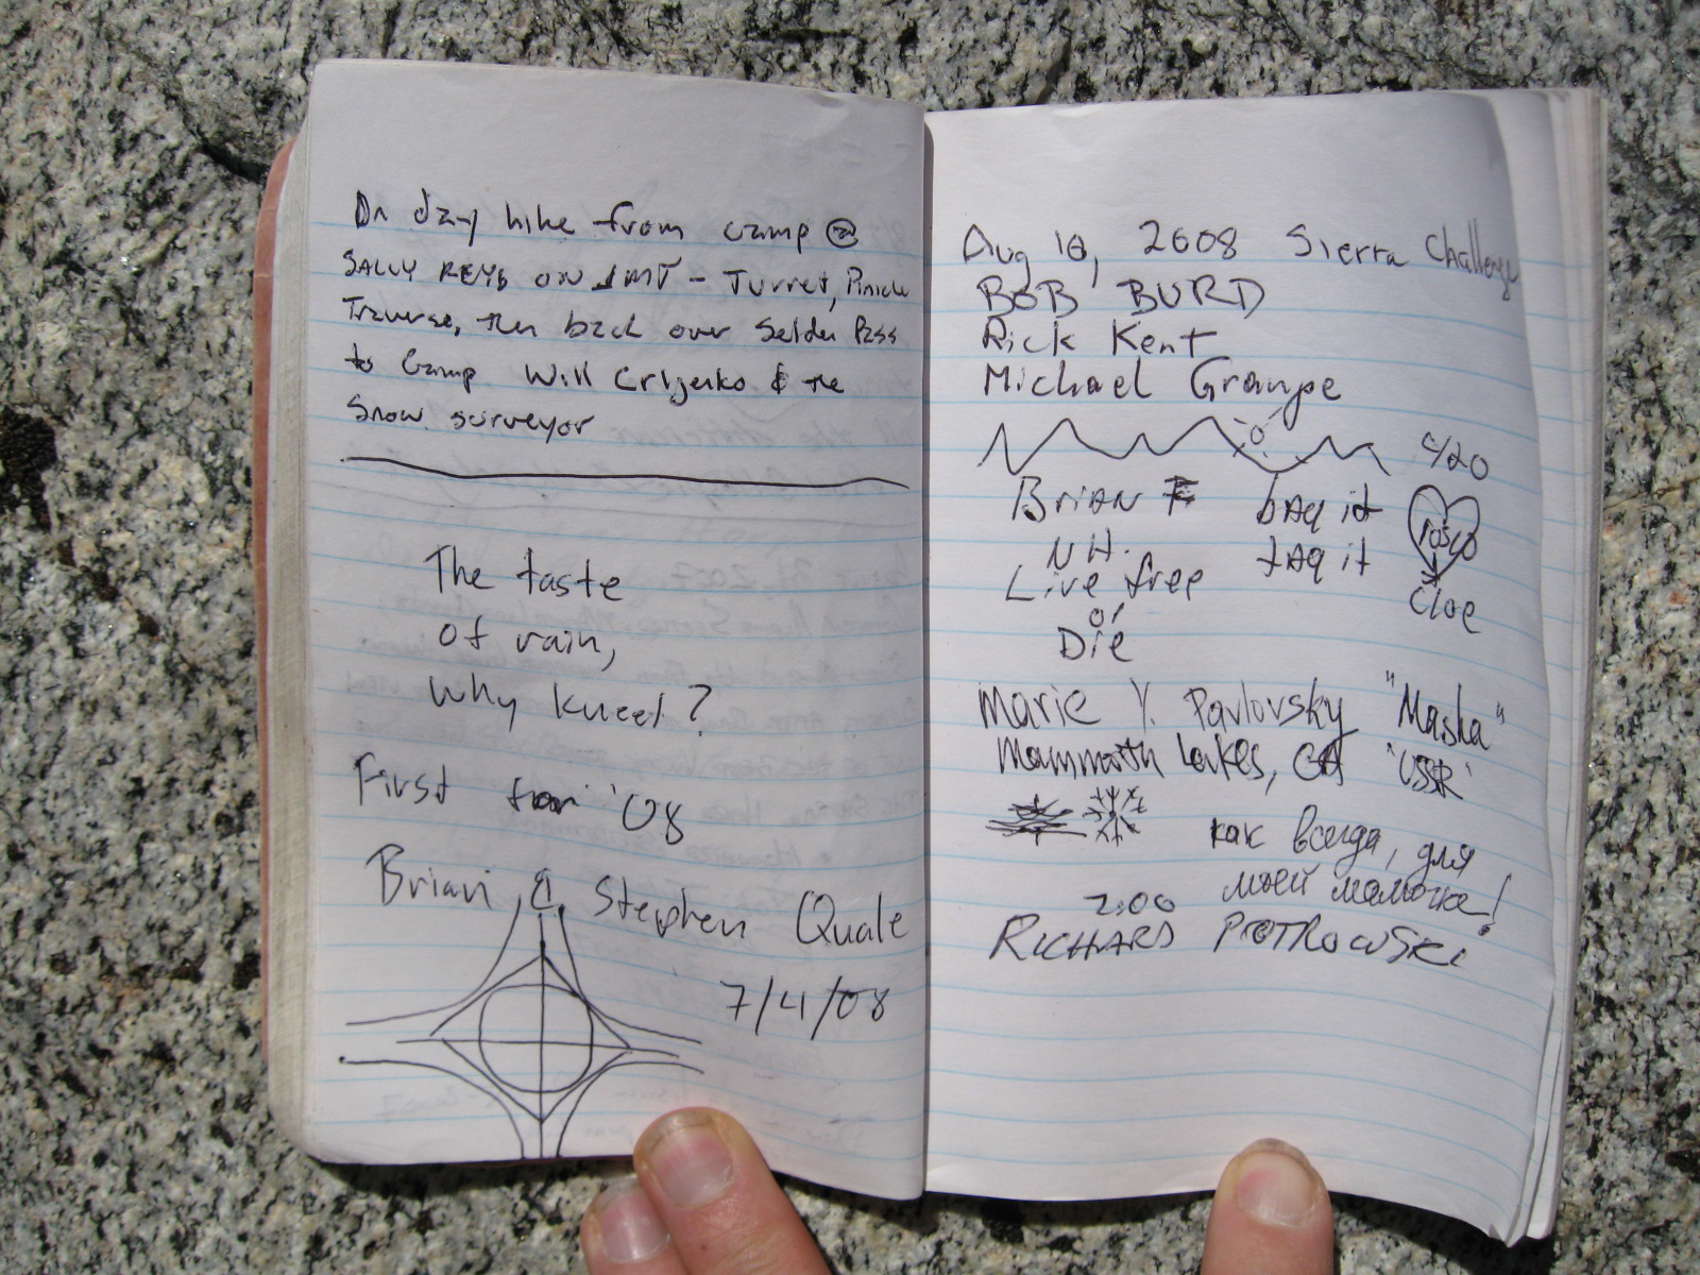 On day hike from camp @
SALLY KEYS ON JMT - Turret, Pinicle
Traverse, then back over Selden Pass
to Camp Will & the
Snow surveyor
The taste
of rain,
Why kneel?
First for '08
Brian & Stephen Quale
7/4/08
Aug 10, 2008 Sierra Challenge
BOB BURD
Rick Kent
Michael Graupe
Brian F bag it
NH. tag it
Live free
or
Die
9/20
rosco
Cloe
Marie Y. Pavlovsky "Masha"
Mammoth Lakes, CA "USSR"
как всегда, для
моей мамочке!
2:00
RICHARD PIOTROWSKI